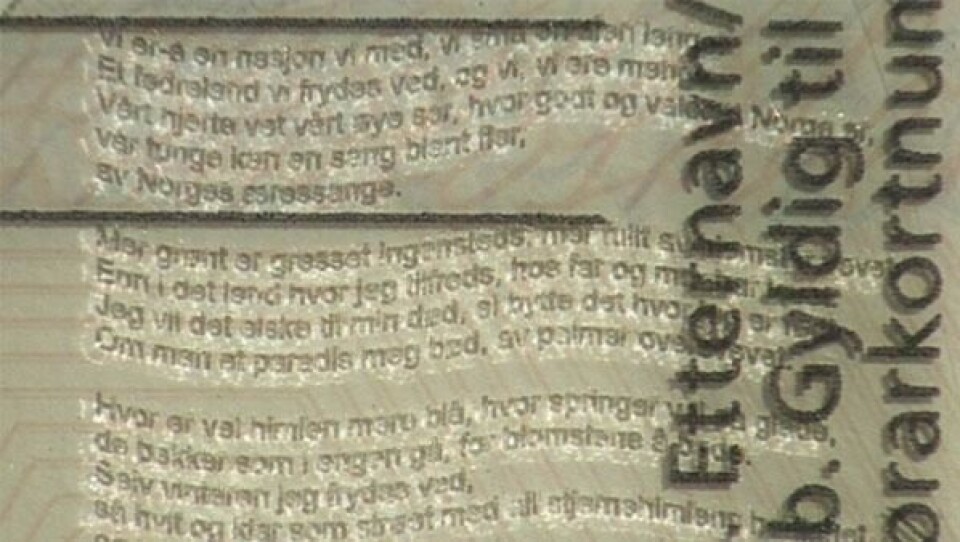 Vi er-e en nasjon vi med, vi små en alen lang
Et fedreland vi frydes ved, og vi, vi ere
Vårt hjerte vet vårt øye ser, hvor godt og Norge er,
vår tunge kan en sang blant fler,
av Norges æressange.
Mer grønt er gresset ingensteds, mer fullt
Enn i det land hvor jeg tilfreds, hos far og
Jeg vil det elske til min død, ei bytte det hvor er
Om man et paradis meg bød, av palmer
Hvor er vel himlen mere blå, hvor springer glade,
de bekker som i engen gå, for blomstene å
Selv vinteren jeg frydes ved,
så hvit og klar som strøet med all stjernehimlens
Etternavn/
b. Gyldig til
ørarkortnum